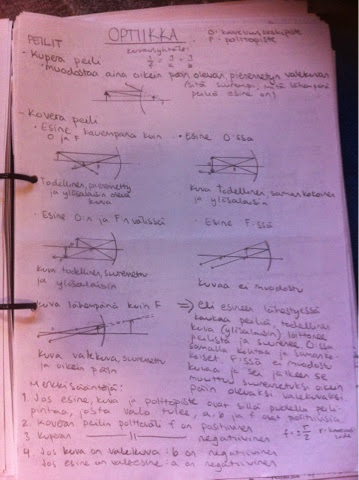 OPTIIKKA
O = kaarevuuskeskipiste
F = polttopiste
PEILIT
kuvausyhtälö:
- Kupera peili
1/f = 1/a + 1/b
- muodostaa aina oikein päin olevan pienennetyn valekuvan
(sitä suurempi, mitä lähempänä
peiliä esine on)
- Kovera peili
· Esine kauempana kuin
O ja F
· Esine O:ssa
Todellinen, pienennetty
ja ylösalaisin oleva
kuva
Kuva todellinen, saman kokoinen
ja ylösalaisin
· Esine O:n ja F:n välissä
· Esine F:ssä
Kuva todellinen, suurennettu
ja ylösalaisin
Kuvaa ei muodostu
lähempänä kuin F
Kuva valekuva, suurennettu
ja oikein päin
=> Eli esineen lähestyessä
koveraa peiliä, todellinen
kuva (ylösalaisin) loittonee
peilistä ja suurenee. O:ssa
samalla kohtaa ja saman ko-
koiset. F:ssä ei muodostu
kuvaa ja sen jälkeen se
muuttuu suurennetuksi oikein
päin olevaksi valekuvaksi.
Merkkisääntöjä:
1. Jos esine, kuva ja polttopiste ovat sillä puolella peili-
pintaa, josta valo tulee, a, b ja f ovat positiivisia
2. Koveran peilin polttoväli f on positiivinen
3. Kuperan —— || —— negatiivinen
f = ± r/2
4. Jos kuva on valekuva: b on negatiivinen
Jos esine on valeesine: a on negatiivinen